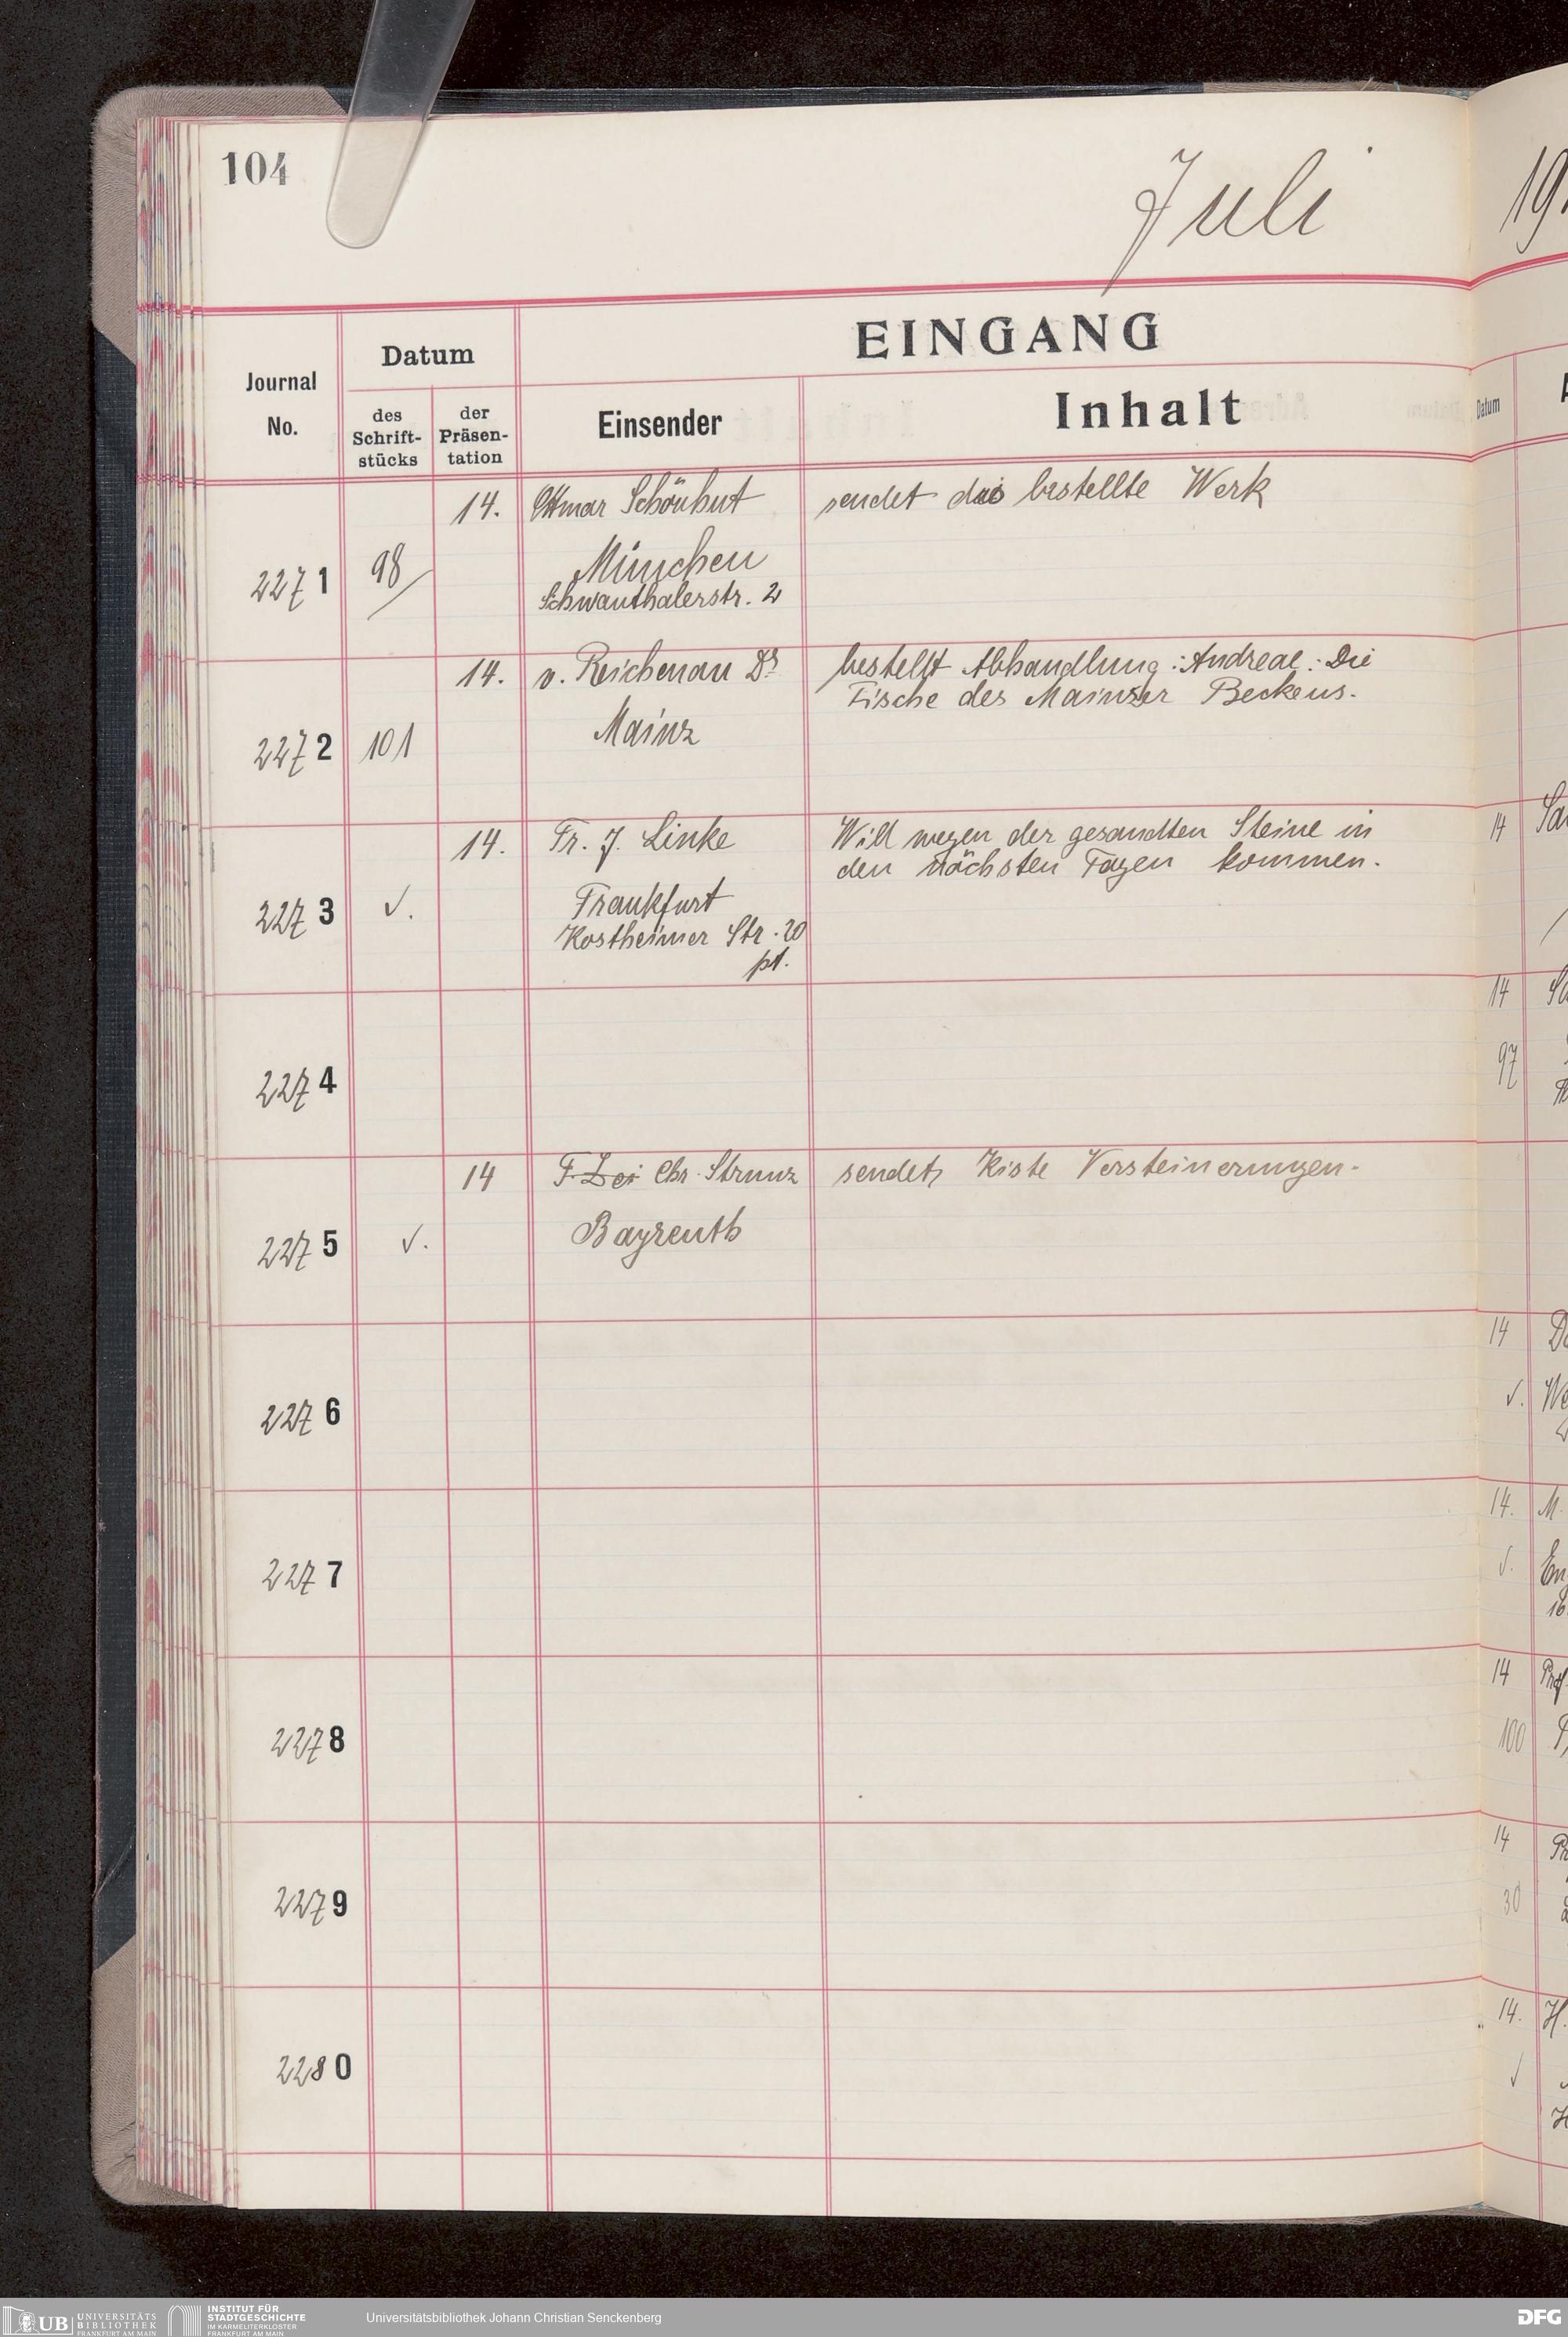 104
Juli
EINGANG
Journal
No.
Datum
des
Schrift-
stücks
der
Präsen-
tation
Einsender
Inhalt
Datum
14. Ottmar Schönhut sendet das bestellte Werk
2271 98 München
Schwanthalerstr. 2
14. v. Reichenau Dr. bestellt Abhandlung: Andreae: Die
Fische des Mainzer Beckens.
2272 101 Mainz
14. Fr. J. Linke Will wegen der gesandten Steine in
den nächsten Tagen kommen.
2273 √. Frankfurt
Kostheimer Str. 20
pt.
14
2274
14
97
14 F. Chr. Strunz sendet Kiste Versteinerungen.
2275 √. Bayreuth
2276
14
√.
2277
14.
√.
2278
14
100
2279
14
30
2280
14.
√
UB UNIVERSITÄTS
BIBLIOTHEK
FRANKFURT AM MAIN
INSTITUT FÜR
STADTGESCHICHTE
IM KARMELITERKLOSTER
FRANKFURT AM MAIN
Universitätsbibliothek Johann Christian Senckenberg
DFG